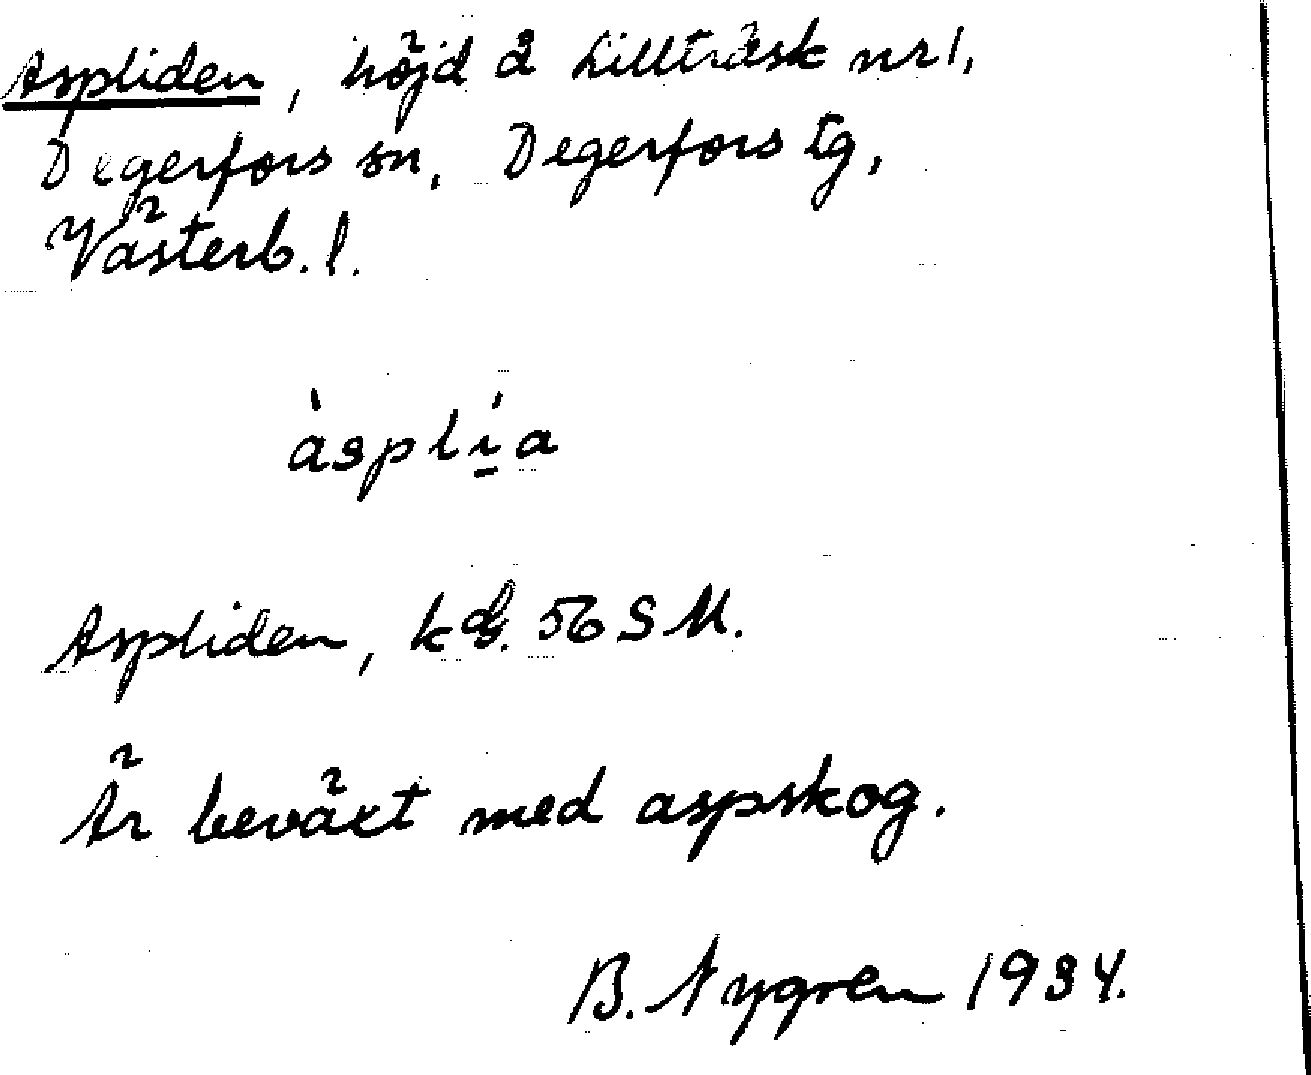 Aspliden, höjd å Lillträsk nr 1,
Degerfors sn, Degerfors tg,
Västerb. l.
àsplí̱a
Aspliden, kbl. 56 S M.
Är beväxt med aspskog.
B. Nygren 1934.